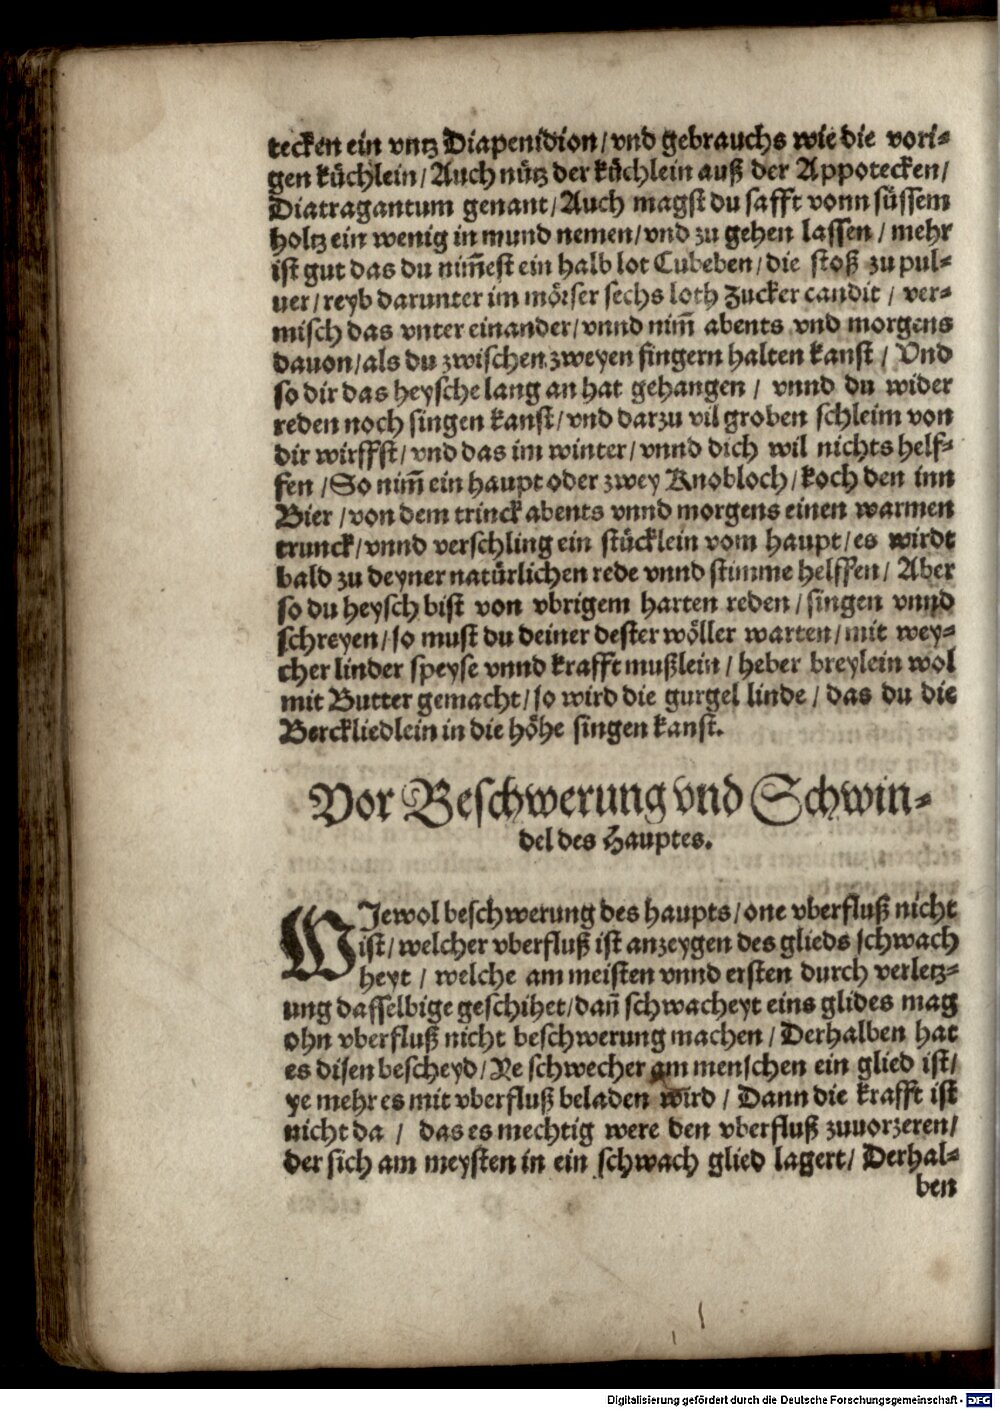 tecken ein vntz Diapenidion/ vnd gebrauchs wie die vori⸗
gen küchlein/ Auch nütz der küchlein auß der Appotecken/
Diatragantum genant/ Auch magst du safft vonn süssem
holtz ein wenig in mund nemen/ vnd zu gehen lassen / mehr
ist gut das du nim̃est ein halb lot Cubeben/ die stoß zu pul⸗
uer/ reyb darunter im mörser sechs loth Zucker candit / ver⸗
misch das vnter einander/ vnnd nim̃ abents vnd morgens
dauon/ als du zwischen zweyen fingern halten kanst / Vnd
so dir das heysche lang an hat gehangen / vnnd du wider
reden noch singen kanst/ vnd darzu vil groben schleim von
dir wirffst/ vnd das im winter/ vnnd dich wil nichts helf⸗
fen /So nim̃ ein haupt oder zwey Knobloch/ koch den inn
Bier / von dem trinck abents vnnd morgens einen warmen
trunck/ vnnd verschling ein stücklein vom haupt/ es wirdt
bald zu deyner natürlichen rede vnnd stimme helffen/ Aber
so du heysch bist von vbrigem harten reden / singen vnnd
schreyen/ so must du deiner dester wöller warten/ mit wey⸗
cher linder speyse vnnd krafft mußlein / heber breylein wol
mit Butter gemacht/ so wird die gurgel linde / das du die
Berckliedlein in die höhe singen kanst.
Vor Beschwerung vnd Schwin⸗
del des Hauptes.
WJewol beschwerung des haupts/ one vberfluß nicht
ist/ welcher vberfluß ist anzeygen des glieds schwach
heyt / welche am meisten vnnd ersten durch verletz⸗
ung dasselbige geschihet/ dañ schwacheyt eins glides mag
ohn vberfluß nicht beschwerung machen / Derhalben hat
es disen bescheyd/ Ye schwecher am menschen ein glied ist/
ye mehr es mit vberfluß beladen wird / Dann die krafft ist
nicht da / das es mechtig were den vberfluß zuuorzeren/
der sich am meysten in ein schwach glied lagert/ Derhal⸗
ben
Digitalisierung gefördert durch die Deutsche Forschungsgemeinschaft - DFG